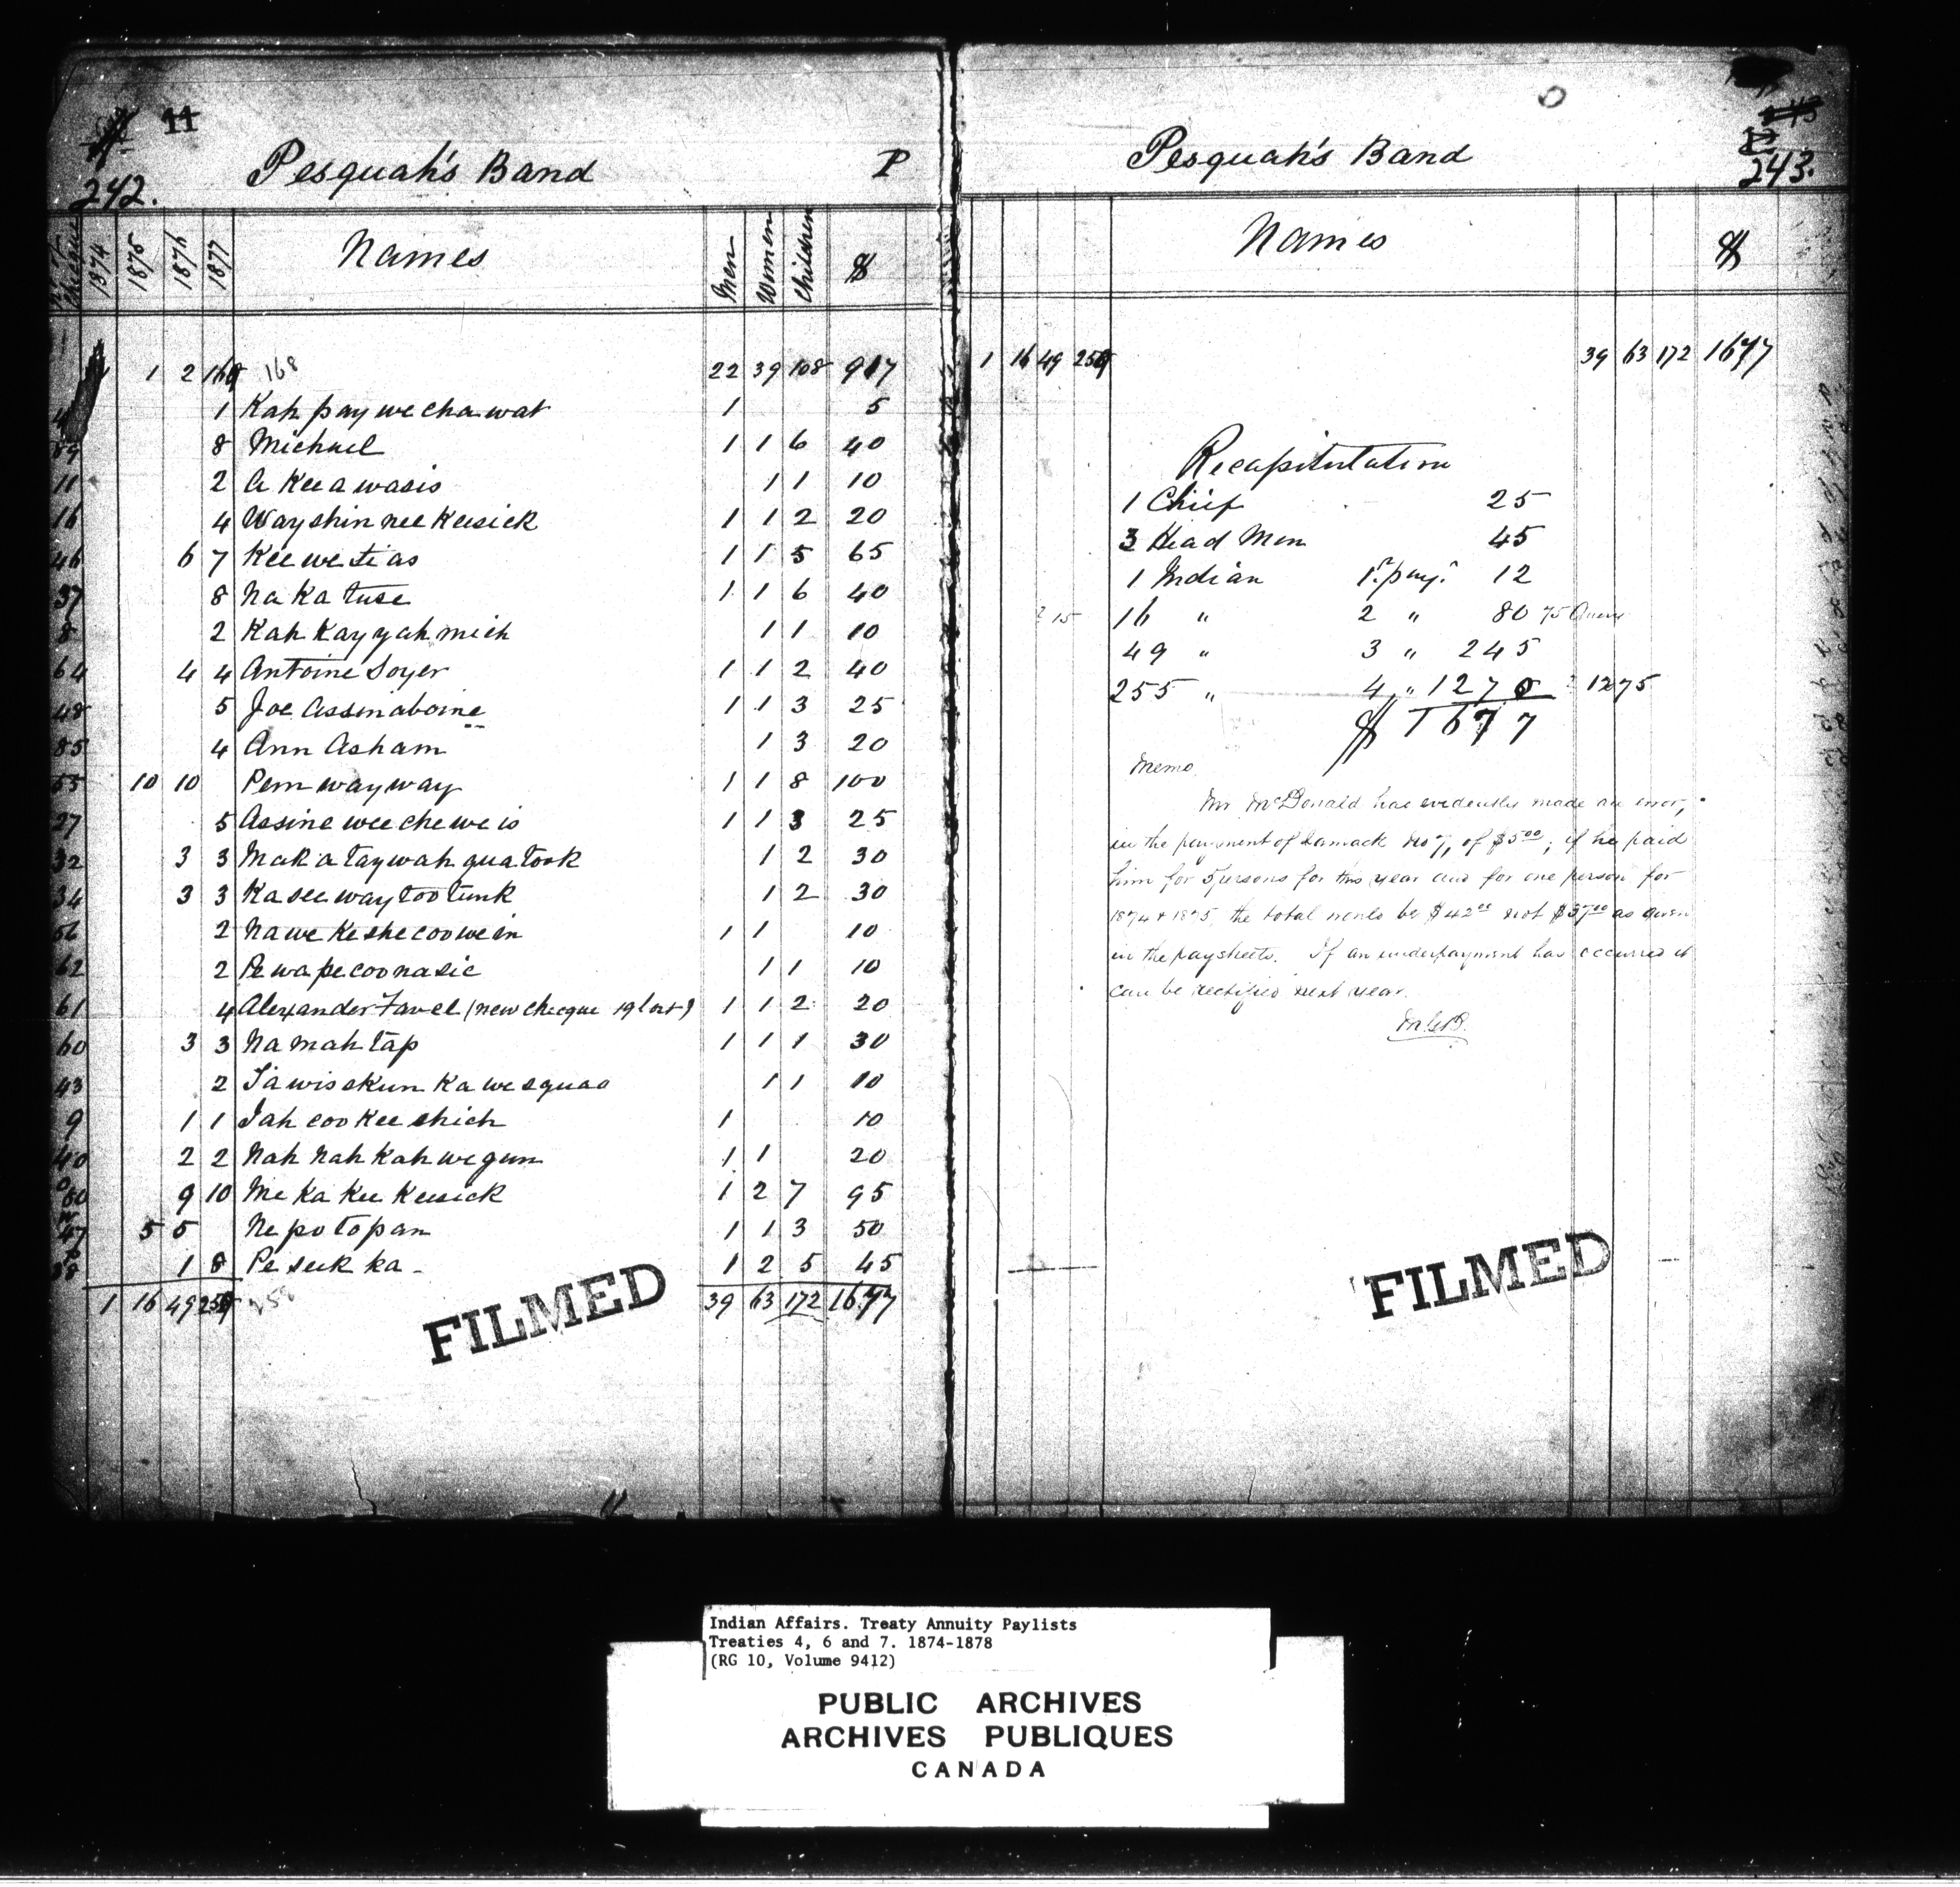 11
242.
Pesquah's Band P
No of Cheque 1874 1875 1876 1877 Names Men Women Children $
1 2 169 168 22 39 108 917
1 Kah pay we cha wat 1 5
89 8 Michael 1 1 6 40
11 2 A Kee a wasis 1 1 10
16 4 Way shin nee Keesick 1 1 2 20
46 6 7 Kee we ti as 1 1 5 65
37 8 Na Ka tuse 1 1 6 40
8 2 Kah Kay yah mich 1 1 10
64 4 4 Antoine Soyer 1 1 2 40
48 5 Joe Assinaboine 1 1 3 25
85 4 Ann Asham 1 3 20
55 10 10 Pem way way 1 1 8 100
27 5 Assine wee che we is 1 1 3 25
32 3 3 Mak a tay wah qua took 1 2 30
34 3 3 Ka see way too tunk 1 2 30
56 2 Na we Ke she coo we in 1 1 10
62 2 Pe wa pe coo nasic 1 1 10
61 4 Alexander Favel (new checque 19 lost) 1 1 2 20
60 3 3 Na mah tap 1 1 1 30
43 2 Ta wis skun Ka we squao 1 1 10
9 1 1 Jah coo Kee shich 1 10
40 2 2 Nah Nah Kah we gun 1 1 20
80 9 10 Me Ka Kee Keesick 1 2 7 95
47 5 5 Ne po to pan 1 1 3 50
38 1 8 Pe seek ka 1 2 5 45
1 16 49 259 39 63 172 1677
FILMED
Pesquah's Band
243.
Names $
1 16 49 259 39 63 172 1677
Recapitulation
1 Chief 25
3 Head Men 45
1 Indian 1st pay't 12
? 15 16 " 2 " 80 75 Query
49 " 3 " 245
255 " 4 " 1270 ? 1275
$ 1677
Memo
Mr McDonald has evidently made an error,
in the payment of Samack No 7, of $5.00; if he paid
him for 5 persons for this year and for one person for
1874 & 1875, the total would be $42.00 not $37.00 as given
in the paysheets. If an underpayment has occurred it
can be rectified next year.
FILMED
Indian Affairs. Treaty Annuity Paylists
Treaties 4, 6 and 7. 1874-1878
(RG 10, Volume 9412)
PUBLIC ARCHIVES
ARCHIVES PUBLIQUES
CANADA